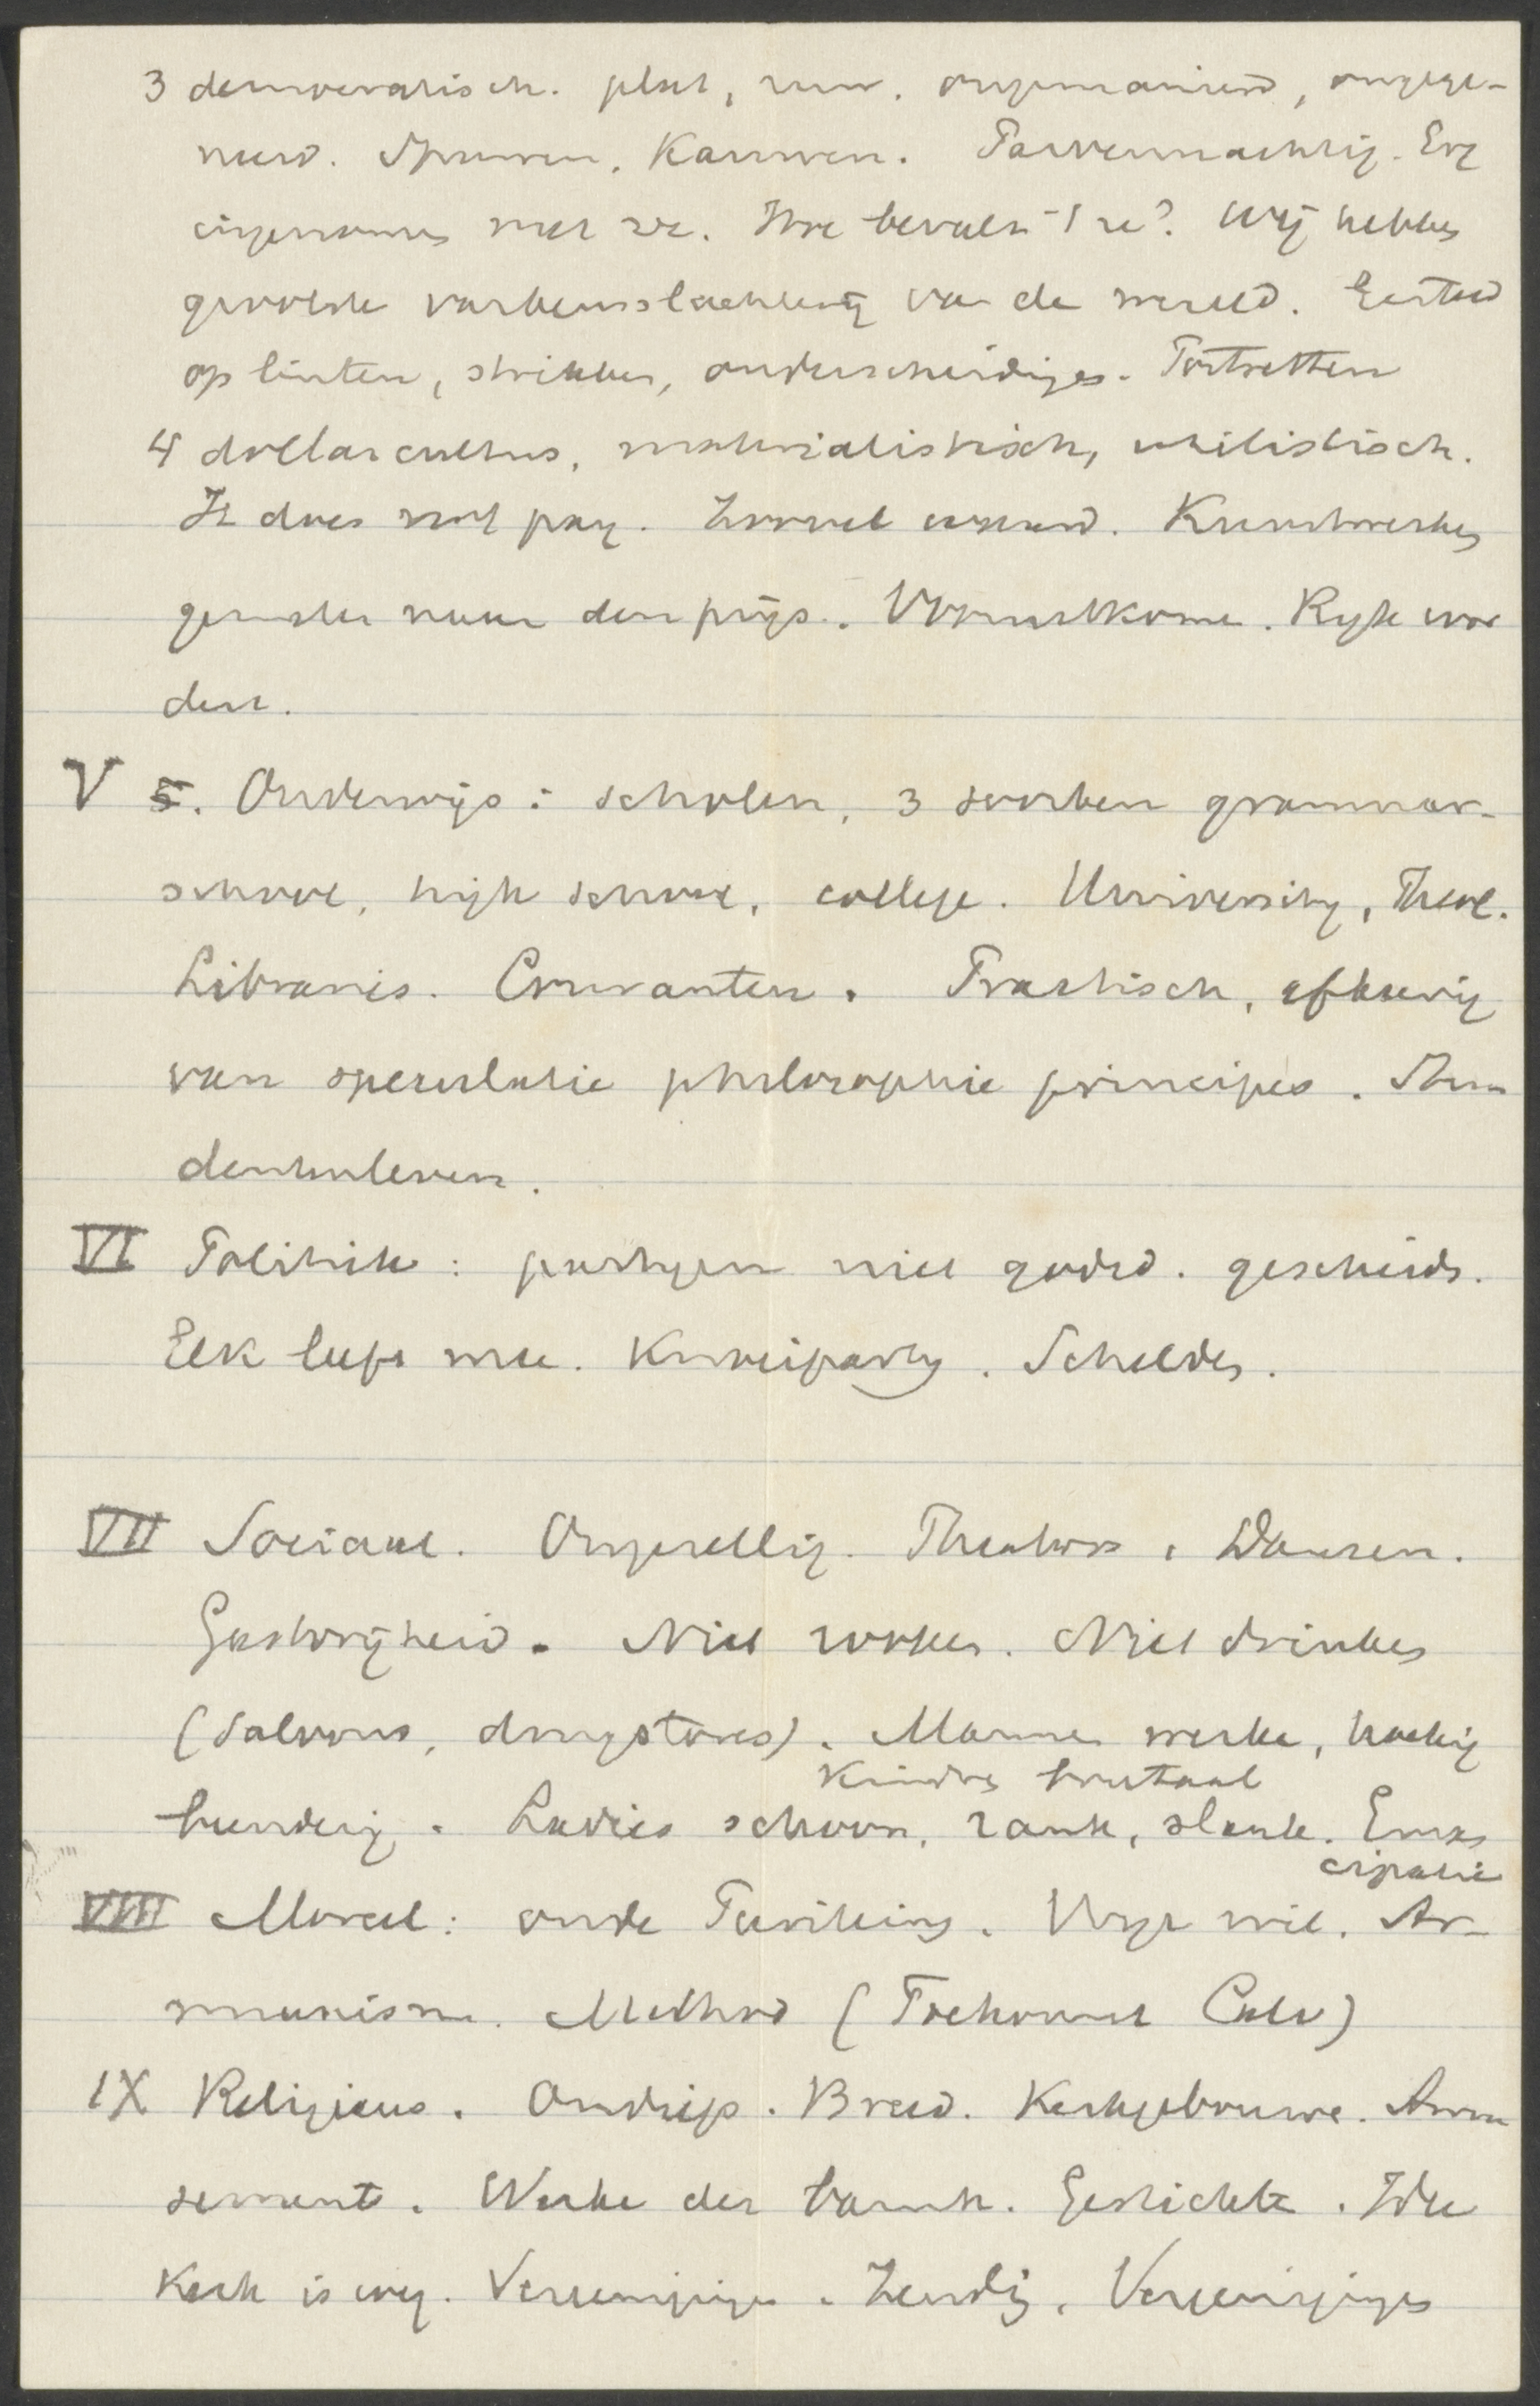 3 democratisch. plat, ruw. ongemanierd, ongege-
neerd. Spuwen, Kauwen. Parvenuachtig. Erg
ingenomen met ze. Hoe bevalt 't u? Wij hebben
grootste varkensslachterij van de wereld. Gesteld
op linten, strikken, onderscheidingen. Portretten
4 dollarcultus, materialistisch, utilistisch.
It does not pay. Zooveel waard. Kunstwerken
geroemd naar den prijs. Vooruitkomen. Ryk wor
den.
V 5. Onderwijs: scholen, 3 soorten grammar-
school, high school, college. University, Theol.
Libraries. Couranten. Practisch, afkeerig
van speculatie philosophie principes. Stu
dentenleven.
VI Politiek: partyen niet godsd. gescheiden.
Elk loopt mee. Knoeiparty. Schelden.
VII Sociaal. Ongezellig. Theaters, Dansen.
Gastvrijheid. Niet rooken. Niet drinken
(saloons, drugstores). Mannen werken, hoekig
Kinders brutaal
bundig. Ladies schoon, rank, slank. Eman
cipatie
VIII Moreel: oude Puriteins. Vrije wil. Ar-
minianisme. Method (Toekomst Calv)
IX Religieus. Ondiep. Breed. Kerkgebouwen. Amu
sement. Werken der barmh. Gestichten. Idee
Kerk is weg. Vereenigingen. Zending. Vereenigingen